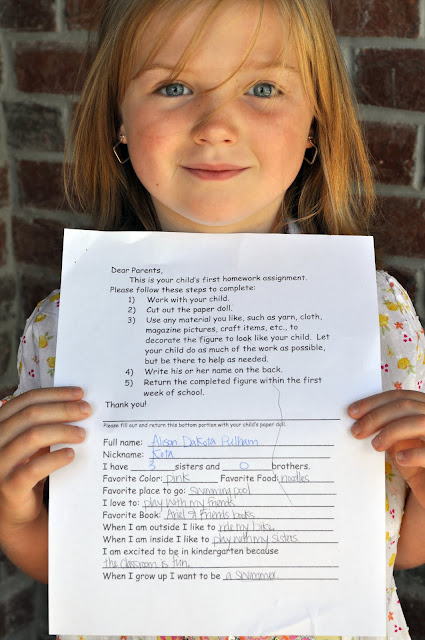 Dear Parents,
This is your child's first homework assignment.
Please follow these steps to complete:
1) Work with your child.
2) Cut out the paper doll.
3) Use any material you like, such as yarn, cloth,
magazine pictures, craft items, etc., to
decorate the figure to look like your child. Let
your child do as much of the work as possible,
but be there to help as needed.
4) Write his or her name on the back.
5) Return the completed figure within the first
week of school.
Thank you!
Please fill out and return this bottom portion with your child's paper doll.
Full name: Alison Dakota Pulham
Nickname: Kota
I have 3 sisters and 0 brothers.
Favorite Color: pink Favorite Food: noodles
Favorite place to go: swimming pool
I love to: play with my friends
Favorite Book: Ariel & Friends books
When I am outside I like to ride my bike.
When I am inside I like to play with my sisters.
I am excited to be in kindergarten because
the classroom is fun.
When I grow up I want to be a swimmer.